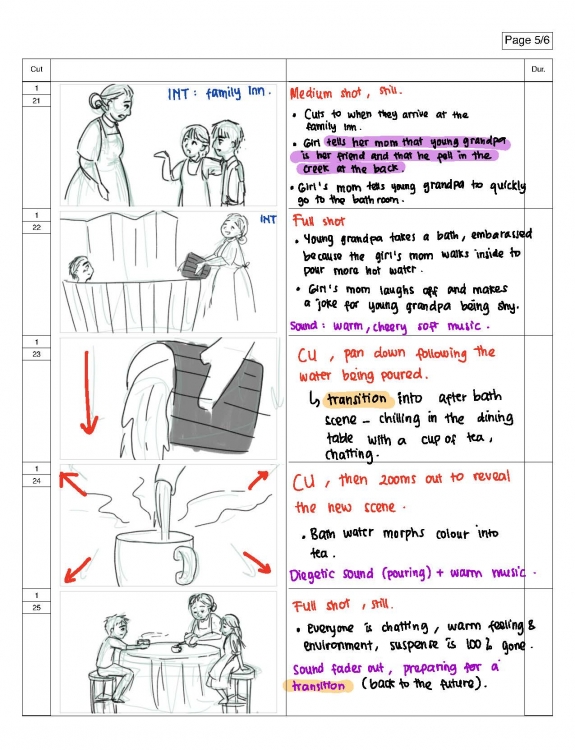 Page 5/6
Cut
Dur.
1
21
INT : family Inn .
Medium shot , still.
• Cuts to when they arrive at the
family inn.
• Girl tells her mom that young grandpa
is her friend and that he fell in the
creek at the back.
• Girl's mom tells young grandpa to quickly
go to the bath room.
1
22
INT
Full shot
• Young grandpa takes a bath, embarassed
because the girl's mom walks inside to
pour more hot water.
• Girl's mom laughs off and makes
a joke for young grandpa being shy.
Sound : warm, cheery soft music .
1
23
CU , pan down following the
water being poured.
↳ transition into after bath
scene - chilling in the dining
table with a cup of tea,
chatting.
1
24
CU , then zooms out to reveal
the new scene .
• Bath water morphs colour into
tea.
Diegetic sound (pouring) + warm music .
1
25
Full shot , still.
• Everyone is chatting, warm feeling &
environment, suspense is 100% gone.
Sound fades out, preparing for a
transition (back to the future).